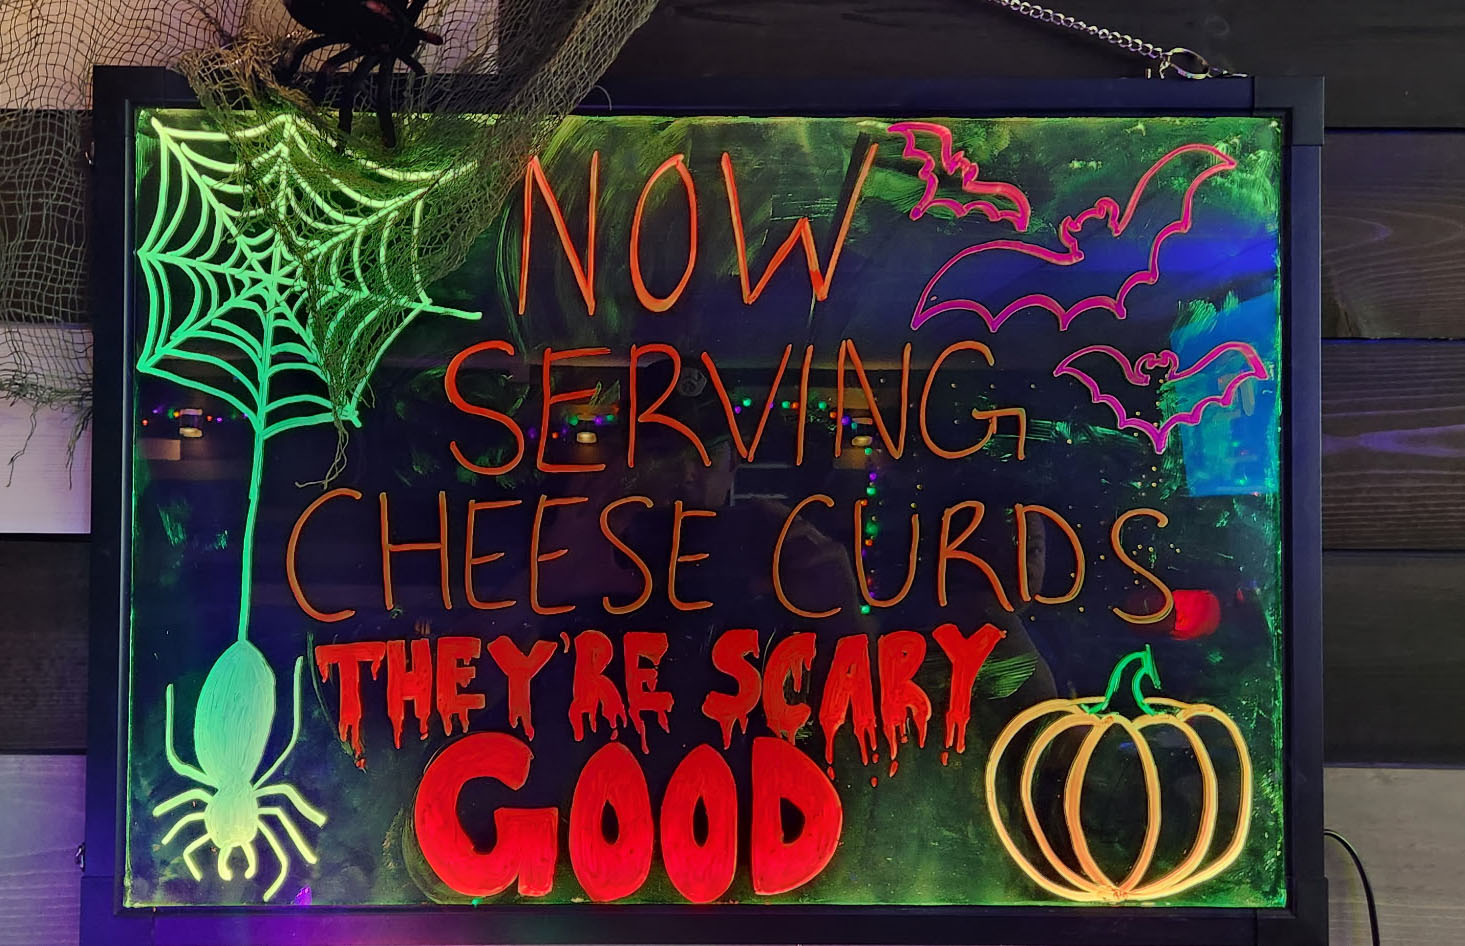 NOW
SERVING
CHEESE CURDS
THEY'RE SCARY
GOOD